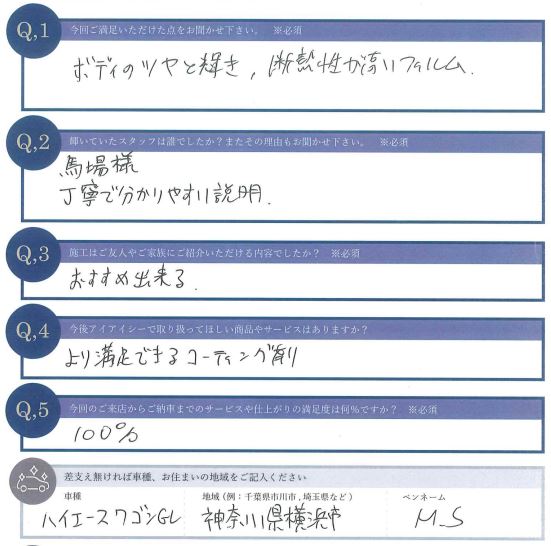 Q,1 今回ご満足いただけた点をお聞かせ下さい。 ※必須
ボディのツヤと輝き,断熱性が高いフィルム.
Q,2 輝いていたスタッフは誰でしたか?またその理由もお聞かせ下さい。 ※必須
馬場様
丁寧で分かりやすい説明.
Q,3 施工はご友人やご家族にご紹介いただける内容でしたか? ※必須
おすすめ出来る.
Q,4 今後アイアイシーで取り扱ってほしい商品やサービスはありますか?
より満足できるコーティング剤
Q,5 今回のご来店からご納車までのサービスや仕上がりの満足度は何%ですか? ※必須
100%
差支え無ければ車種、お住まいの地域をご記入ください
車種 地域(例:千葉県市川市,埼玉県など) ペンネーム
ハイエースワゴンGL 神奈川県横浜市 M.S